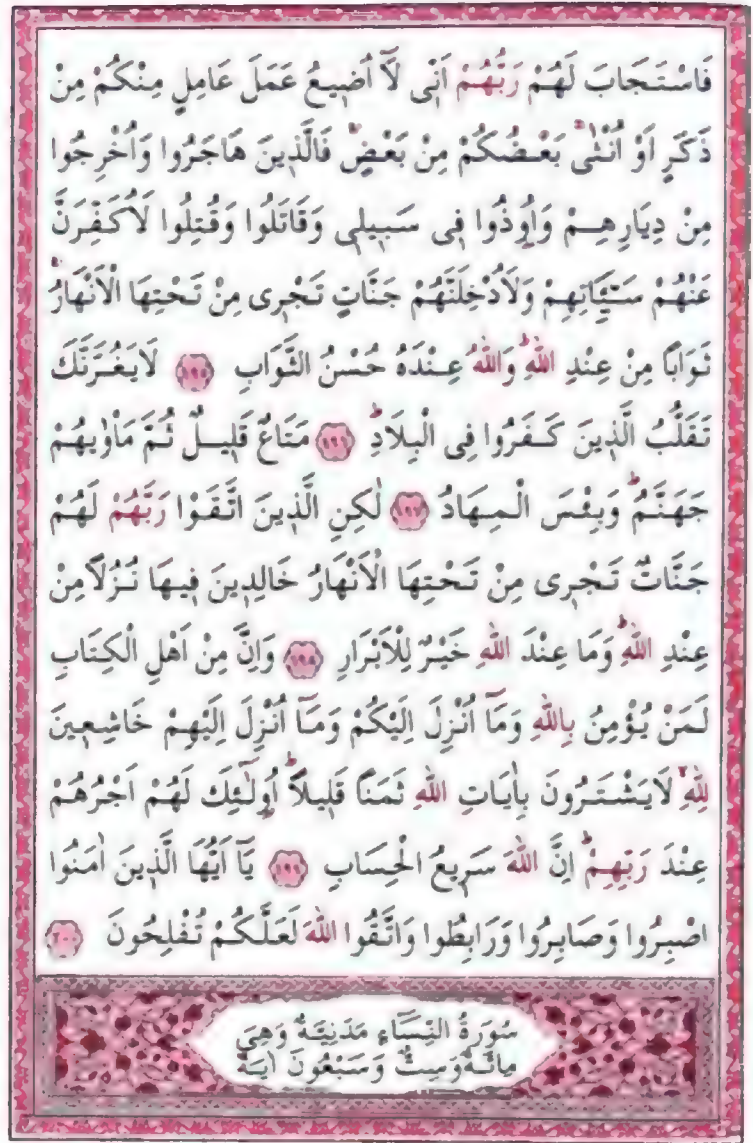 فَاسْتَجَابَ لَهُمْ رَبُّهُمْ اَنّٖى لَٓا اُضٖيعُ عَمَلَ عَامِلٍ مِنْكُمْ مِنْ
ذَكَرٍ اَوْ اُنْثٰىۚ بَعْضُكُمْ مِنْ بَعْضٍۚ فَالَّذٖينَ هَاجَرُوا وَاُخْرِجُوا
مِنْ دِيَارِهِمْ وَاُوذُوا فٖى سَبٖيلٖى وَقَاتَلُوا وَقُتِلُوا لَاُكَفِّرَنَّ
عَنْهُمْ سَيِّـَٔاتِهِمْ وَلَاُدْخِلَنَّهُمْ جَنَّاتٍ تَجْرٖى مِنْ تَحْتِهَا الْاَنْهَارُۚ
ثَوَابًا مِنْ عِنْدِ اللّٰهِؕ وَاللّٰهُ عِنْدَهُ حُسْنُ الثَّوَابِ ﴿١٩٥﴾ لَا يَغُرَّنَّكَ
تَقَلُّبُ الَّذٖينَ كَفَرُوا فِى الْبِلَادِؕ ﴿١٩٦﴾ مَتَاعٌ قَلٖيلٌ ثُمَّ مَاْوٰيهُمْ
جَهَنَّمُؕ وَبِئْسَ الْمِهَادُ ﴿١٩٧﴾ لٰكِنِ الَّذٖينَ اتَّقَوْا رَبَّهُمْ لَهُمْ
جَنَّاتٌ تَجْرٖى مِنْ تَحْتِهَا الْاَنْهَارُ خَالِدٖينَ فٖيهَا نُزُلًا مِنْ
عِنْدِ اللّٰهِؕ وَمَا عِنْدَ اللّٰهِ خَيْرٌ لِلْاَبْرَارِ ﴿١٩٨﴾ وَاِنَّ مِنْ اَهْلِ الْكِتَابِ
لَمَنْ يُؤْمِنُ بِاللّٰهِ وَمَٓا اُنْزِلَ اِلَيْكُمْ وَمَٓا اُنْزِلَ اِلَيْهِمْ خَاشِعٖينَ
لِلّٰهِۙ لَا يَشْتَرُونَ بِاٰيَاتِ اللّٰهِ ثَمَنًا قَلٖيلًاؕ اُولٰٓئِكَ لَهُمْ اَجْرُهُمْ
عِنْدَ رَبِّهِمْؕ اِنَّ اللّٰهَ سَرٖيعُ الْحِسَابِ ﴿١٩٩﴾ يَٓا اَيُّهَا الَّذٖينَ اٰمَنُوا
اصْبِرُوا وَصَابِرُوا وَرَابِطُوا وَاتَّقُوا اللّٰهَ لَعَلَّكُمْ تُفْلِحُونَ ﴿٢٠٠﴾
سُورَةُ النِّسَٓاءِ مَدَنِيَّةٌ وَهِىَ
مِائَةٌ وَسِتٌّ وَسَبْعُونَ اٰيَةً